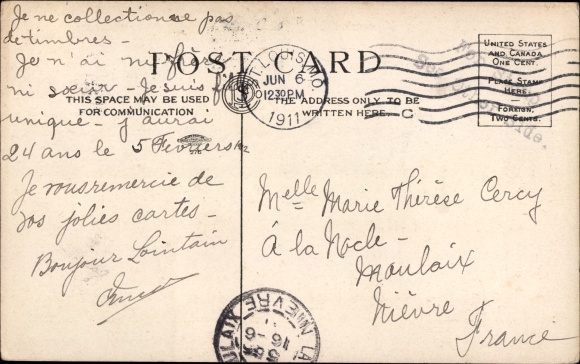 Je ne collectionne pas
de timbres -
Je n'ai ni frère
ni sœur - Je suis fille
unique - J'aurai
24 ans le 5 Février
Je vous remercie de
vos jolies cartes -
Bonjour Lointain
POST CARD
THIS SPACE MAY BE USED
FOR COMMUNICATION
THE ADDRESS ONLY TO BE
WRITTEN HERE
ST. LOUIS, MO.
JUN 6
1230PM
1911
UNITED STATES
AND CANADA
ONE CENT.
PLACE STAMP
HERE.
FOREIGN,
TWO CENTS.
Melle Marie Thérèse Cercy
À la Nocle -
Maulaix
Nièvre
France
LA
MAULAIX
NIEVRE